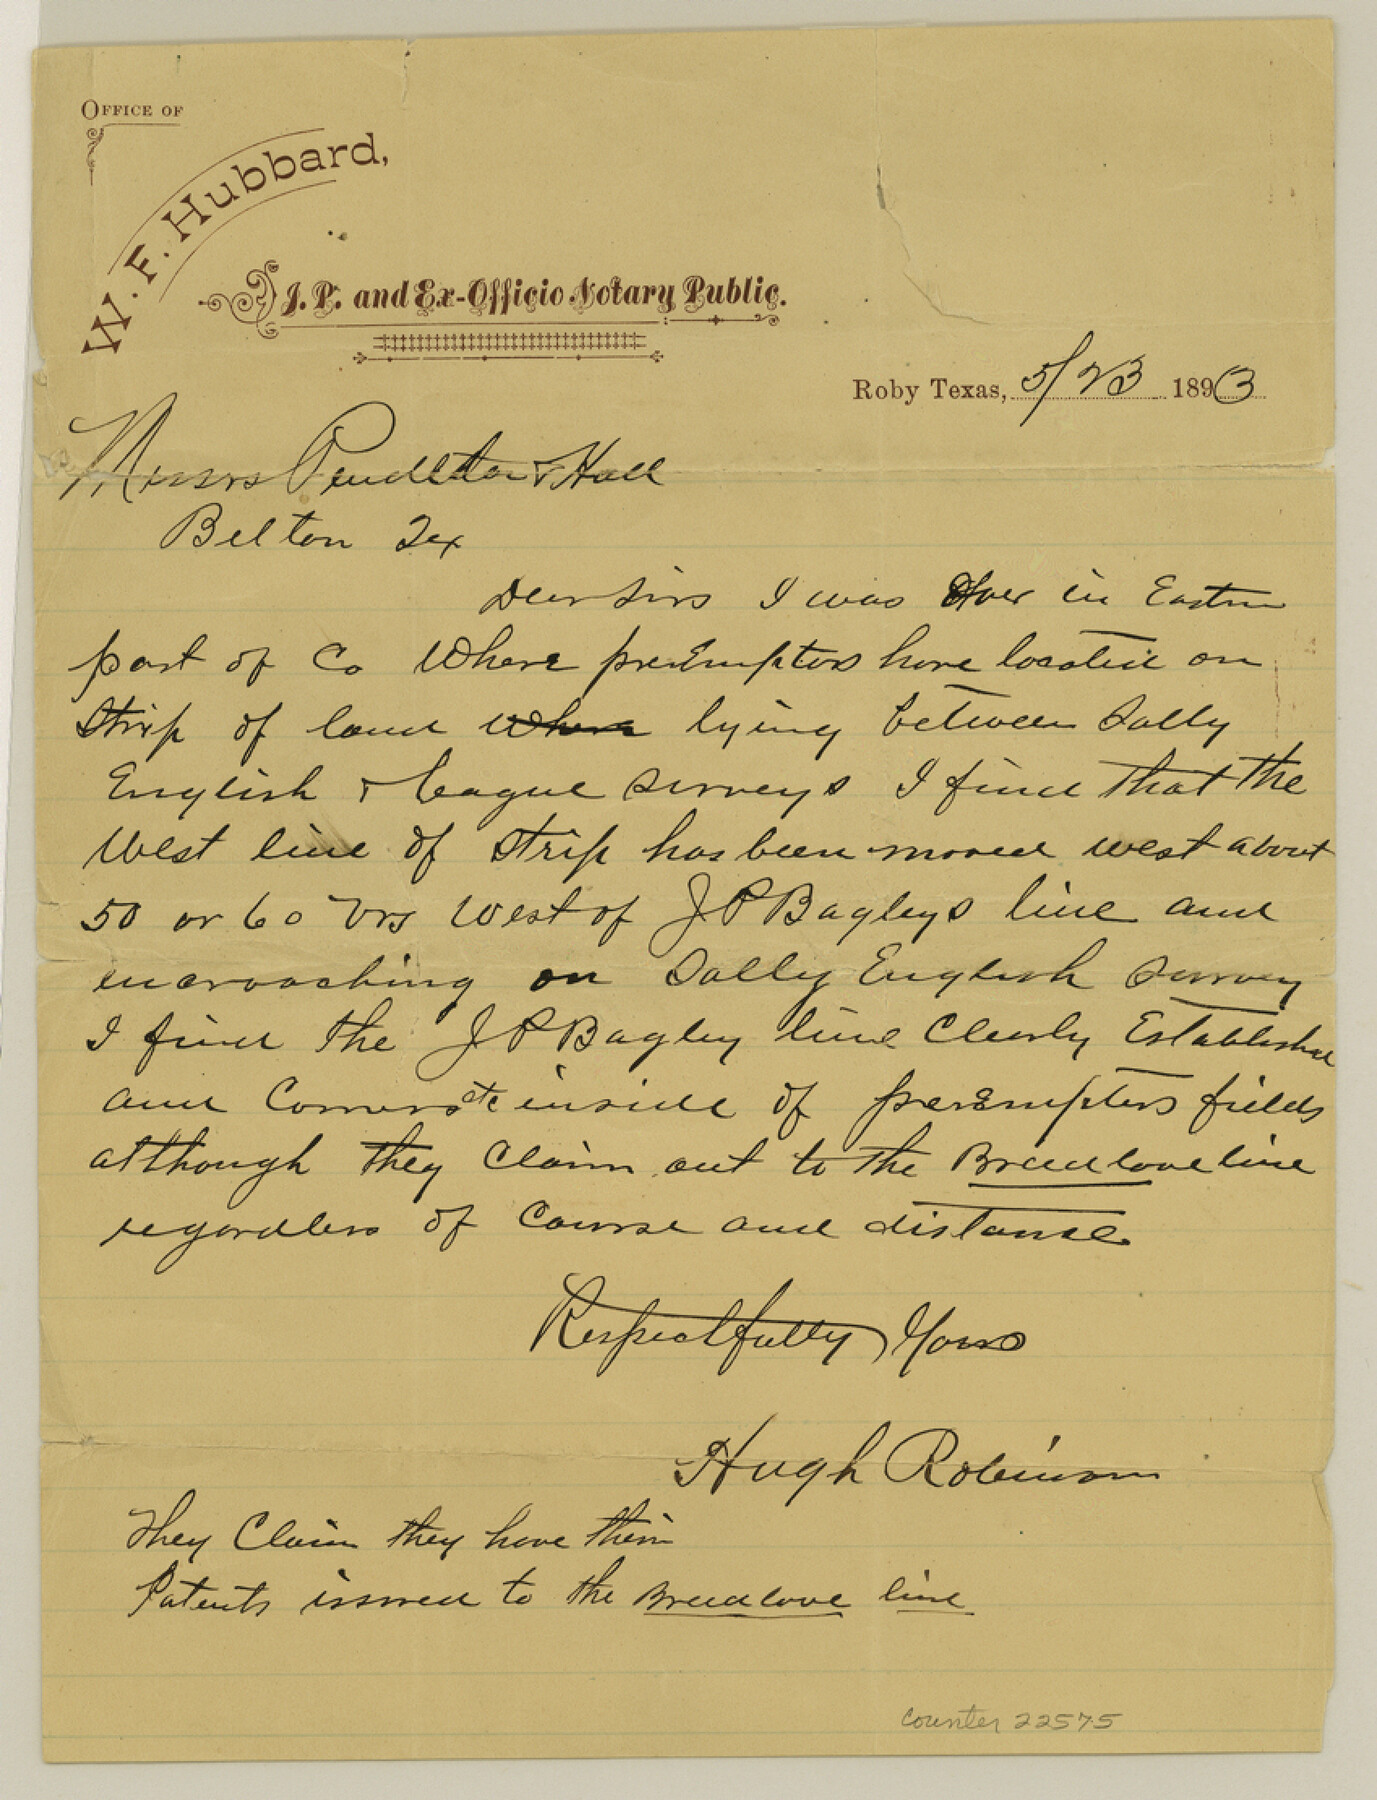 OFFICE OF
W. F. Hubbard,
J. P. and Ex-Officio Notary Public.
Roby Texas, 5/23 1893
Messrs Pendleton & Hall
Belton Tex
Dear Sirs I was Over in Eastern
part of Co Where preEmptors have located on
Strip of land Where lying between Sally
English & League Surveys I find that the
West line of Strip has been moved west about
50 or 60 Vrs West of J P Bagleys line and
encroaching on Sally English Survey
I find the J P Bagley line Clearly Established
and Corners etc inside of preEmptors fields
although they Claim out to the Breedlove line
regardless of Course and distance
Respectfully Yours
Hugh Robinson
They Claim they have their
Patents issued to the Breedlove line
counter 22575